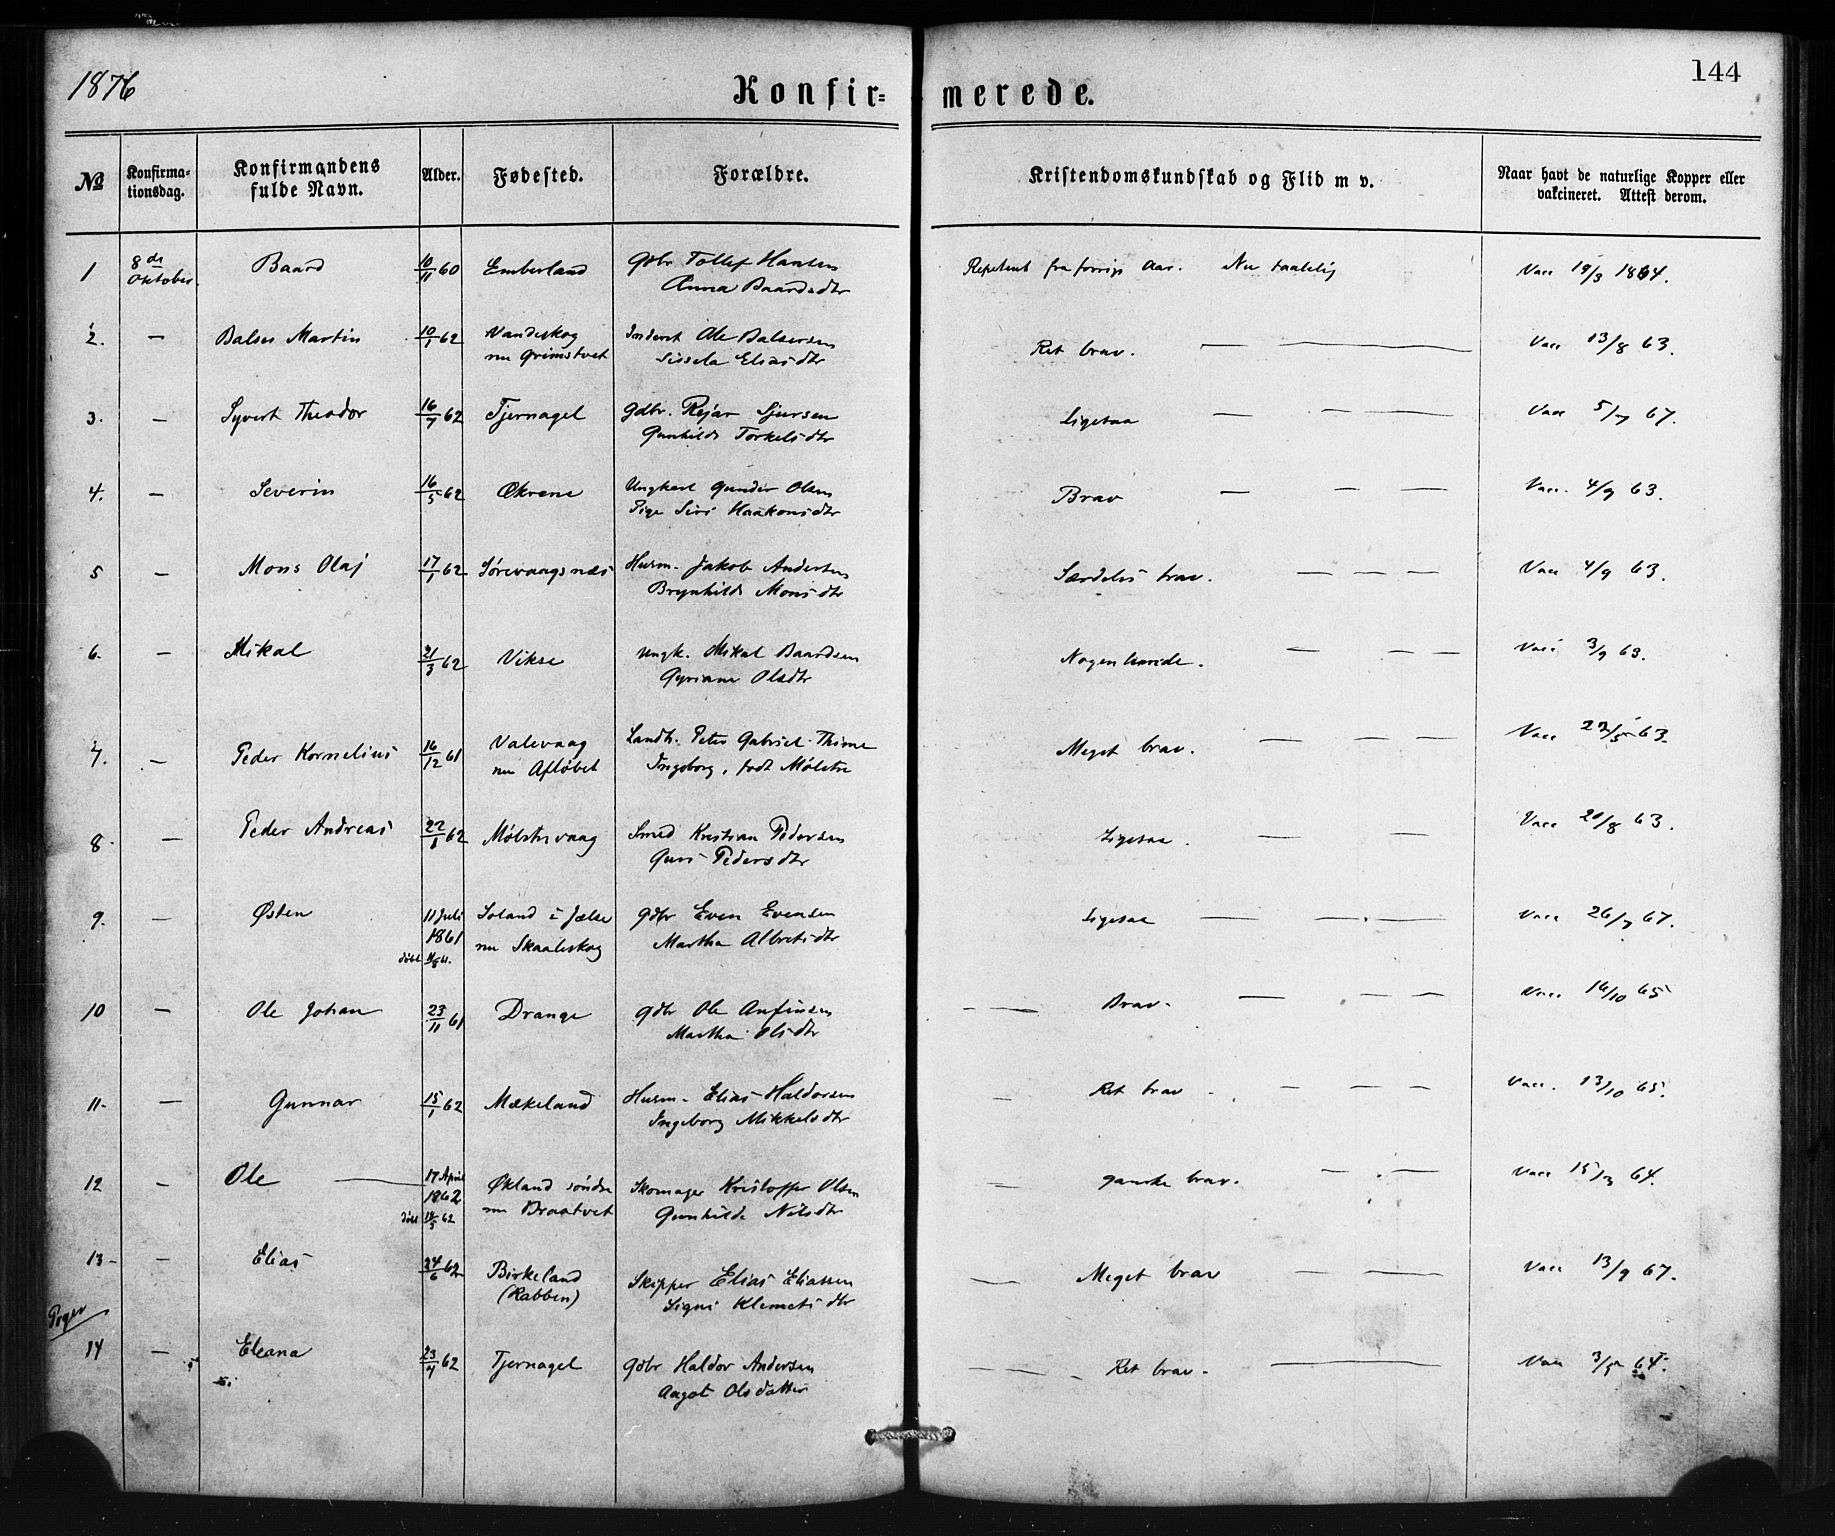 1876
Konfir=
merede.
144
No
Konfirma-
tionsdag.
Konfirmandens
fulde Navn.
Alder.
Fødested.
Forældre.
Kristendomskundskab og Flid m v.
Naar havt de naturlige Kopper eller
vakcineret. Attest derom.
1 8de Baard 10/11 60 Emberland Gdbr Tollef Hansen Repetent fra forrige Aar. Nu taalelig Vacc 19/3 1864.
Oktober. Anna Baardsdtr
2. — Balser Martin 10/1 62 Vandeskog Inderst Ole Balsersen Ret brav. — Vacc 13/8 63.
nu Grimstvet Sissela Eliasdtr
3. — Syvert Theodor 16/7 62 Tjernagel Gdbr. Rejar Sjursen Ligesaa — — — Vacc 5/7 67.
Gunhilde Torkelsdtr
4. — Severin 16/5 62 Økrene Ungkarl Gunder Olsen Brav — — — Vacc. 4/9 63.
Pige Siri Haakonsdtr
5 — Mons Olaj 17/1 62 Sørevaagsnæs Husm. Jakob Andersen Særdeles brav. — — — Vacc 4/9 63.
Brynhilde Monsdtr
6. — Mikal 21/3 62 Vikse Ungk. Mikal Baardsen Nogenlunde. — — — Vacc 3/9 63.
Gyriane Olsdtr
7. — Peder Kornelius 16/12 61 Valevaag Landh. Peter Gabriel Thime Meget brav. — — — Vacc 22/5 63.
nu Afløbet Ingeborg, født Mølstre
8. — Peder Andreas 22/1 62 Mølstrevaag Smed Kristian Pedersen Ligesaa. — — Vacc 20/8 63.
Guri Pedersdtr
9. — Østen 11 Juli Soland i Jælse Gdbr Even Evensen Ligesaa — — — Vacc 26/7 67.
1861 nu Skaaleskog Martha Albretsdtr
døbt
10 — Ole Johan 23/11 61 Drange Gdbr Ole Anfinsen — — Brav. — — — Vacc 16/10 65
Martha Olsdtr
11. — Gunnar 15/1 62 Mækeland Husm. Elias Haldorsen — Ret brav — — — Vacc. 13/10 65.
Ingeborg Mikkelsdtr
12 — Ole — 17 April Økland søndre Skomager Kristoffer Olsen — ganske brav. — — Vacc 15/3 64.
1862 nu Braatvet Gunhilde Nilsdtr
døbt 62
13 — Elias 24/6 62 Birkeland Skipper Elias Eliassen — Meget brav — — Vacc 13/9 67.
(Rabben) Signi Klemetsdtr
Piger
14 — Eleana 23/4 62 Tjernagel Gdbr Haldor Andersen — — Ret brav. — Vacc 3/5 64.
Aagot Olsdatter